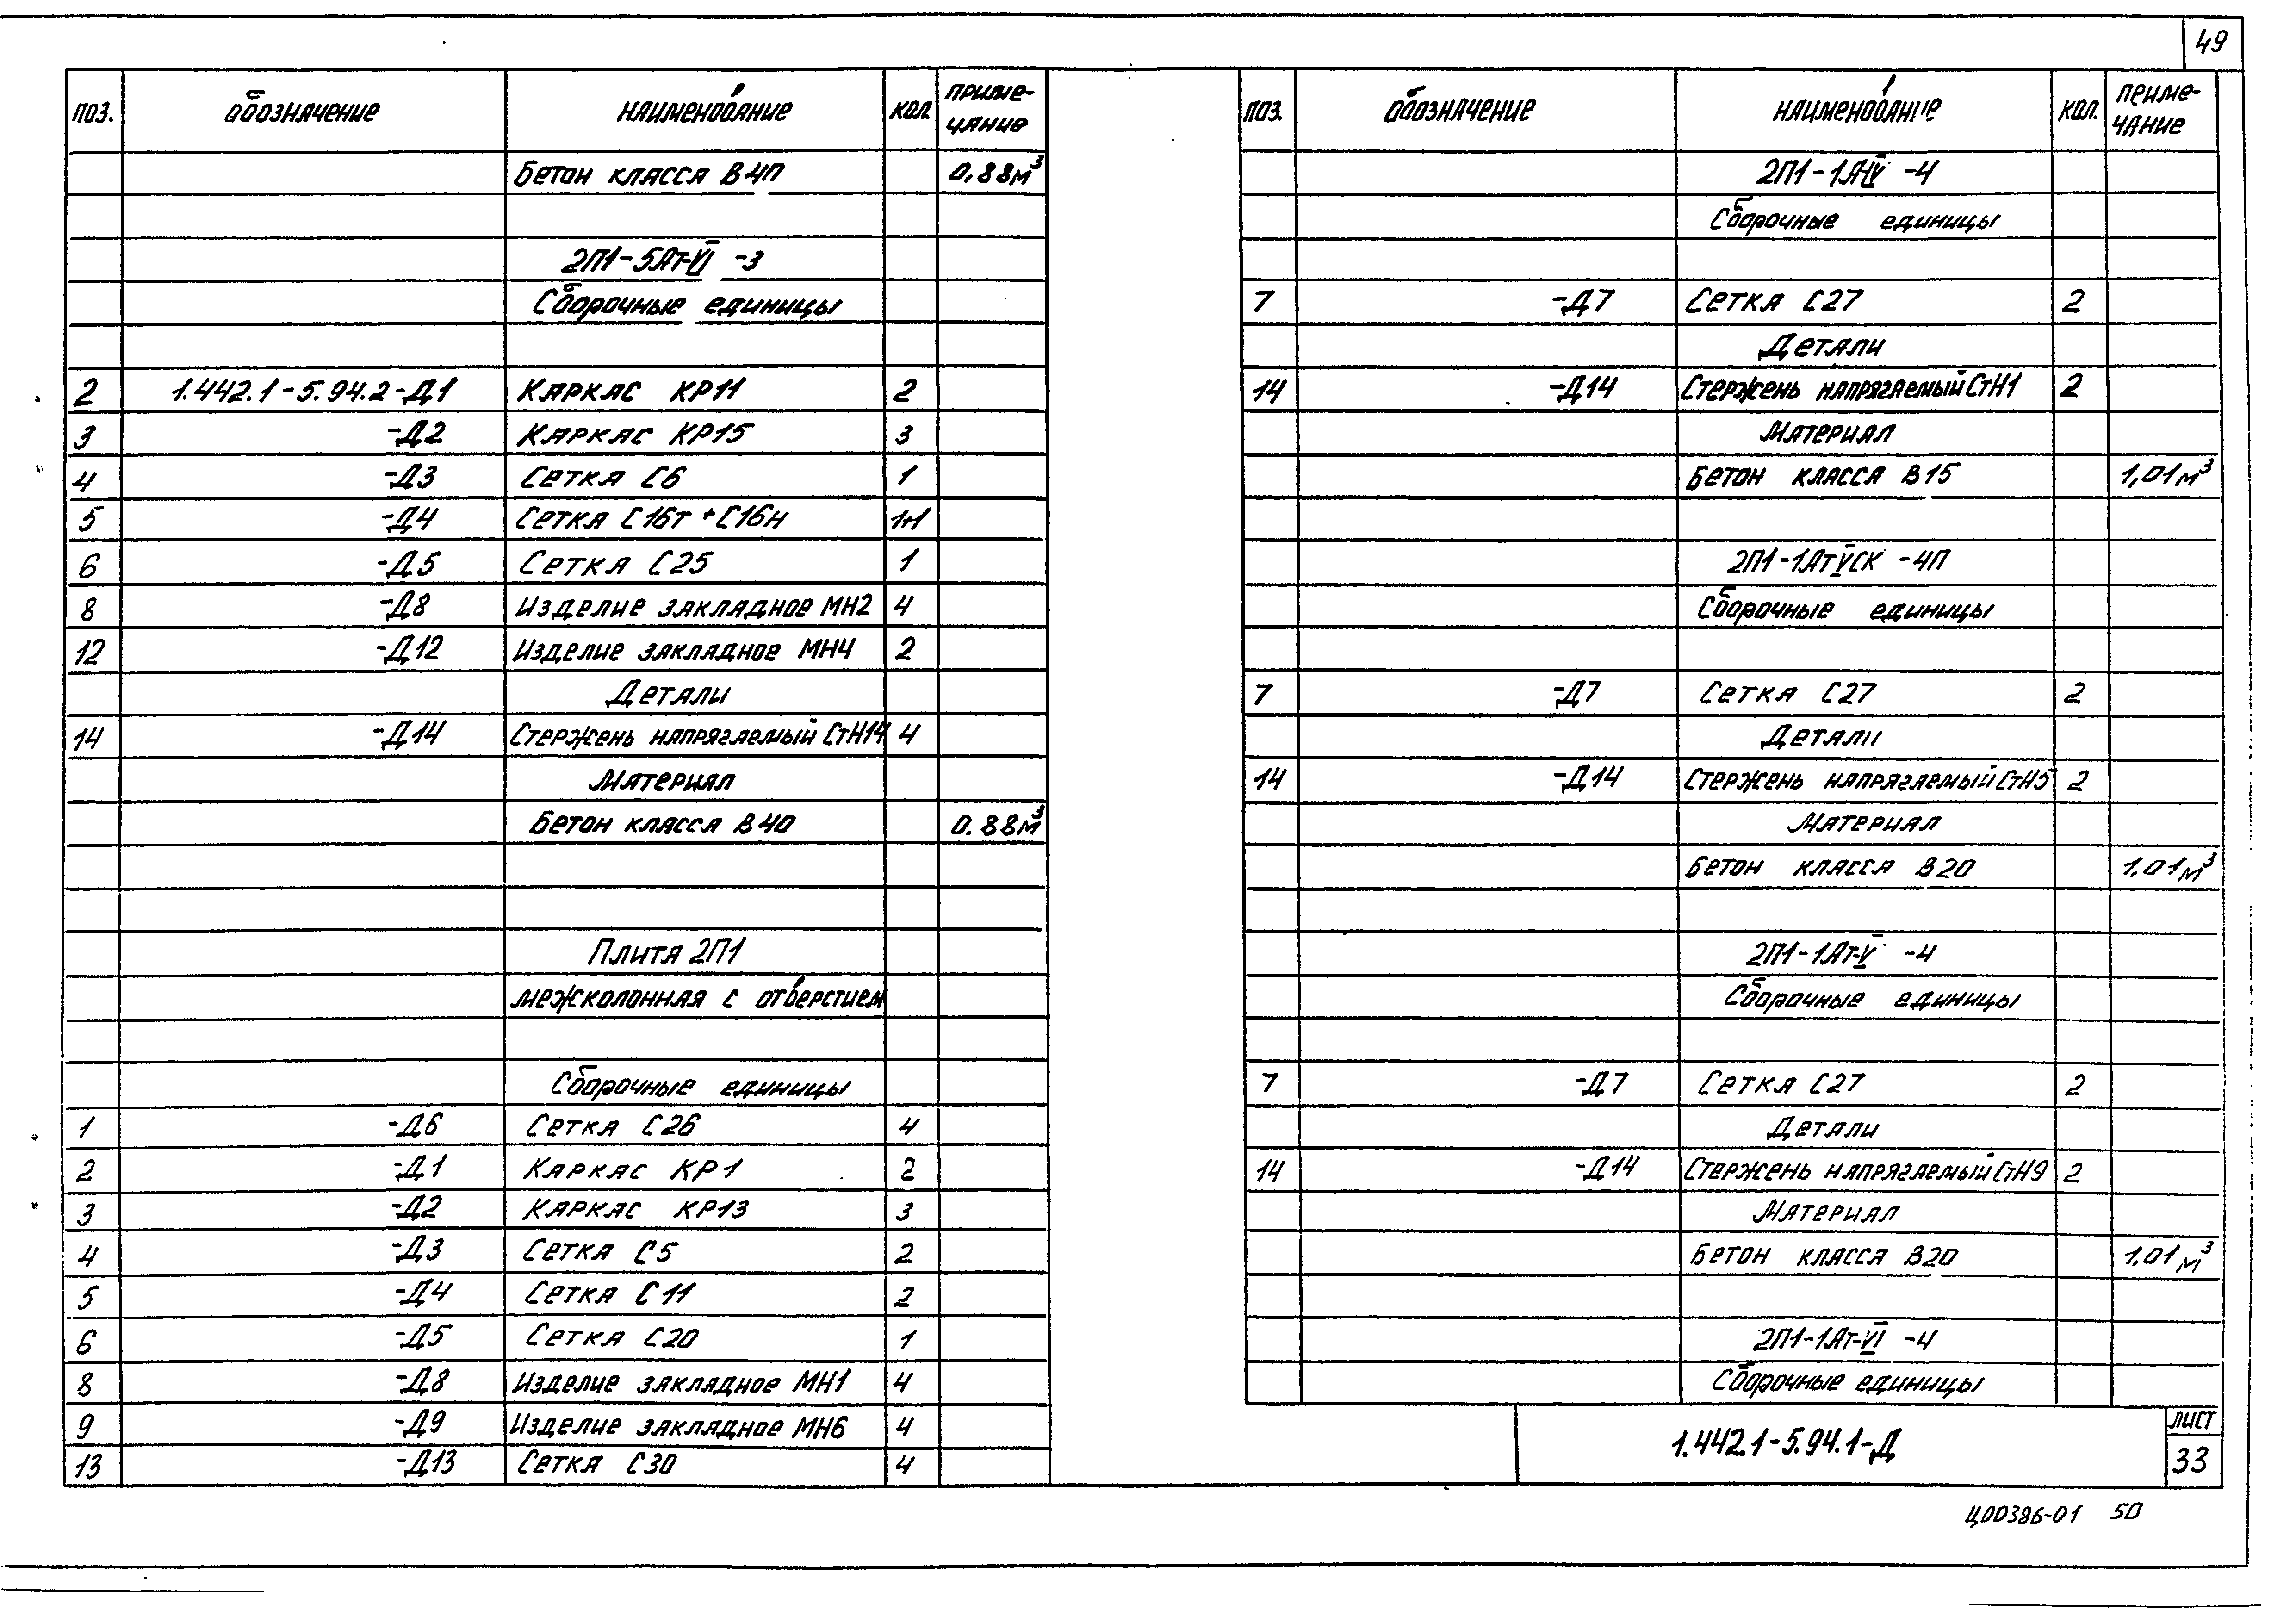 49
поз. обозначение наименование кол. приме-
чание
Бетон класса В40 0,88м³
2П1-5Ат-VI -3
Сборочные единицы
2 1.442.1-5.94.2-Д1 Каркас КР11 2
3 -Д2 Каркас КР15 3
4 -Д3 Сетка С6 1
5 -Д4 Сетка С16т + С16н 1+1
6 -Д5 Сетка С25 1
8 -Д8 Изделие закладное МН2 4
12 -Д12 Изделие закладное МН4 2
Детали
14 -Д14 Стержень напрягаемый СтН14 4
Материал
Бетон класса В40 0.88м³
Плита 2П1
межколонная с отверстием
Сборочные единицы
1 -Д6 Сетка С26 4
2 -Д1 Каркас КР1 2
3 -Д2 Каркас КР13 3
4 -Д3 Сетка С5 2
5 -Д4 Сетка С11 2
6 -Д5 Сетка С20 1
8 -Д8 Изделие закладное МН1 4
9 -Д9 Изделие закладное МН6 4
13 -Д13 Сетка С30 4
поз. обозначение наименование кол. приме-
чание
2П1-1АIV -4
Сборочные единицы
7 -Д7 Сетка С27 2
Детали
14 -Д14 Стержень напрягаемый СтН1 2
Материал
Бетон класса В15 1,01м³
2П1-1АтVСК -4П
Сборочные единицы
7 -Д7 Сетка С27 2
Детали
14 -Д14 Стержень напрягаемый СтН5 2
Материал
Бетон класса В20 1.01м³
2П1-1Ат-V -4
Сборочные единицы
7 -Д7 Сетка С27 2
Детали
14 -Д14 Стержень напрягаемый СтН9 2
Материал
Бетон класса В20 1.01м³
2П1-1Ат-VI -4
Сборочные единицы
1.442.1-5.94.1-Д
лист
33
Ц00386-01 50